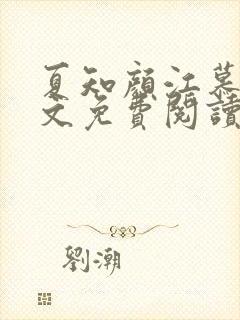 夏知顏江慕
文免費閱讀
劉潮